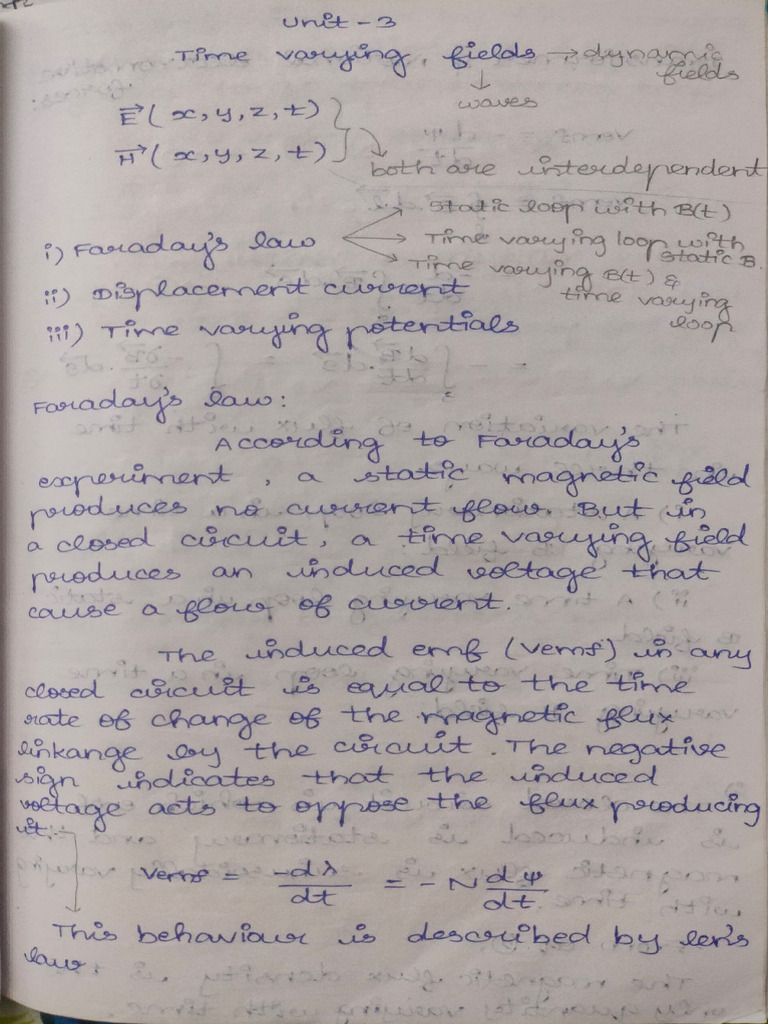 Unit - 3
Time varying fields → dynamic fields
↓
waves
E⃗ (x, y, z, t)
H⃗ (x, y, z, t)
both are interdependent
i) Faraday's law
static loop with B(t)
Time varying loop with static B.
Time varying B(t) &
time varying
loop
ii) Displacement current
iii) Time varying potentials
Faraday's law:
According to Faraday's
experiment, a static magnetic field
produces no current flow. But in
a closed circuit, a time varying field
produces an induced voltage that
cause a flow of current.
The induced emf (Vemf) in any
closed circuit is equal to the time
rate of change of the magnetic flux
linkange by the circuit. The negative
sign indicates that the induced
voltage acts to oppose the flux producing
it.
Vemf = -dλ/dt = - N dψ/dt
This behaviour is described by len's
law